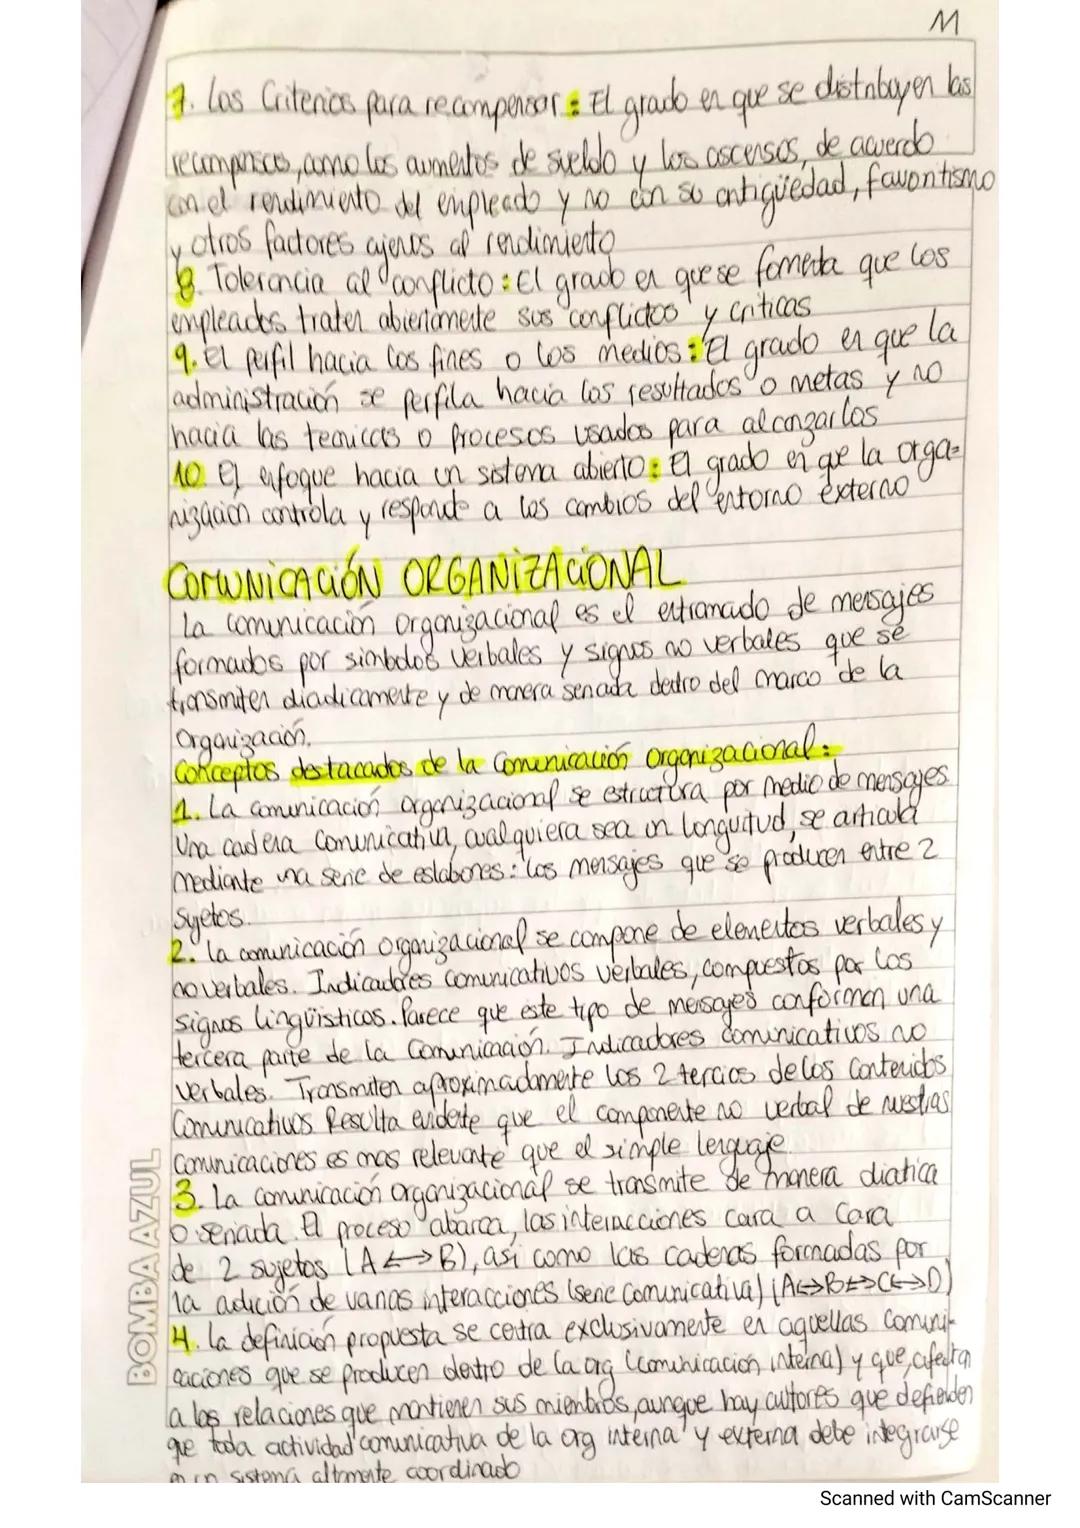 M
7. Los Criterios para recompensar: El grado en que se distribuyen las
recompensas, como los aumentos de sueldo y los ascensos, de acuerdo
con el rendimiento del empleado y no con su antigüedad, favoritismo
y otros factores ajenos al rendimiento
8. Tolerancia al conflicto: El grado en que se fomenta que los
empleados traten abiertamente sus conflictos y criticas
9. El perfil hacia los fines o los medios: El grado en que la
administración se perfila hacia los resultados o metas y no
hacia las tecnicas o procesos usados para alcanzarlos
10. El enfoque hacia un sistema abierto: El grado en que la orga-
nización controla y responde a los cambios del entorno externo
COMUNICACIÓN ORGANIZACIONAL
La comunicación organizacional es el entramado de mensajes
formados por simbolos verbales y signos no verbales que se
transmiten diadicamente y de manera seriada dentro del marco de la
Organización.
Conceptos destacados de la Comunicación organizacional:
1. La comunicación organizacional se estructura por medio de mensajes
Una cadena comunicativa, cualquiera sea un longuitud, se articula
mediante una serie de eslabones: los mensajes que se producen entre 2
sujetos.
2. La comunicación organizacional se compone de elementos verbales y
no verbales. Indicadores comunicativos verbales, compuestos por los
signos lingüisticos. Parece que este tipo de mensajes conforman una
tercera parte de la Comunicación. Indicadores comunicativos no
verbales. Transmiten aproximadamente los 2 tercios de los contenidos
Comunicativos Resulta evidente que el componente no verbal de nuestras
comunicaciones es mas relevante que el simple lenguaje.
3. La comunicación organizacional se transmite de manera diatica
o seriada. El proceso abarca, las interacciones cara a cara
de 2 sujetos (A ↔ B), así como las cadenas formadas por
la adición de varias interacciones (serie comunicativa) (A↔B↔C↔D)
4. La definición propuesta se centra exclusivamente en aquellas Comuni-
caciones que se producen dentro de la org (comunicación interna) y que, afectan
a las relaciones que mantienen sus miembros, aunque hay autores que defienden
que toda actividad comunicativa de la org interna y externa debe integrarse
en un sistema altamente coordinado
BOMBA AZUL
Scanned with CamScanner